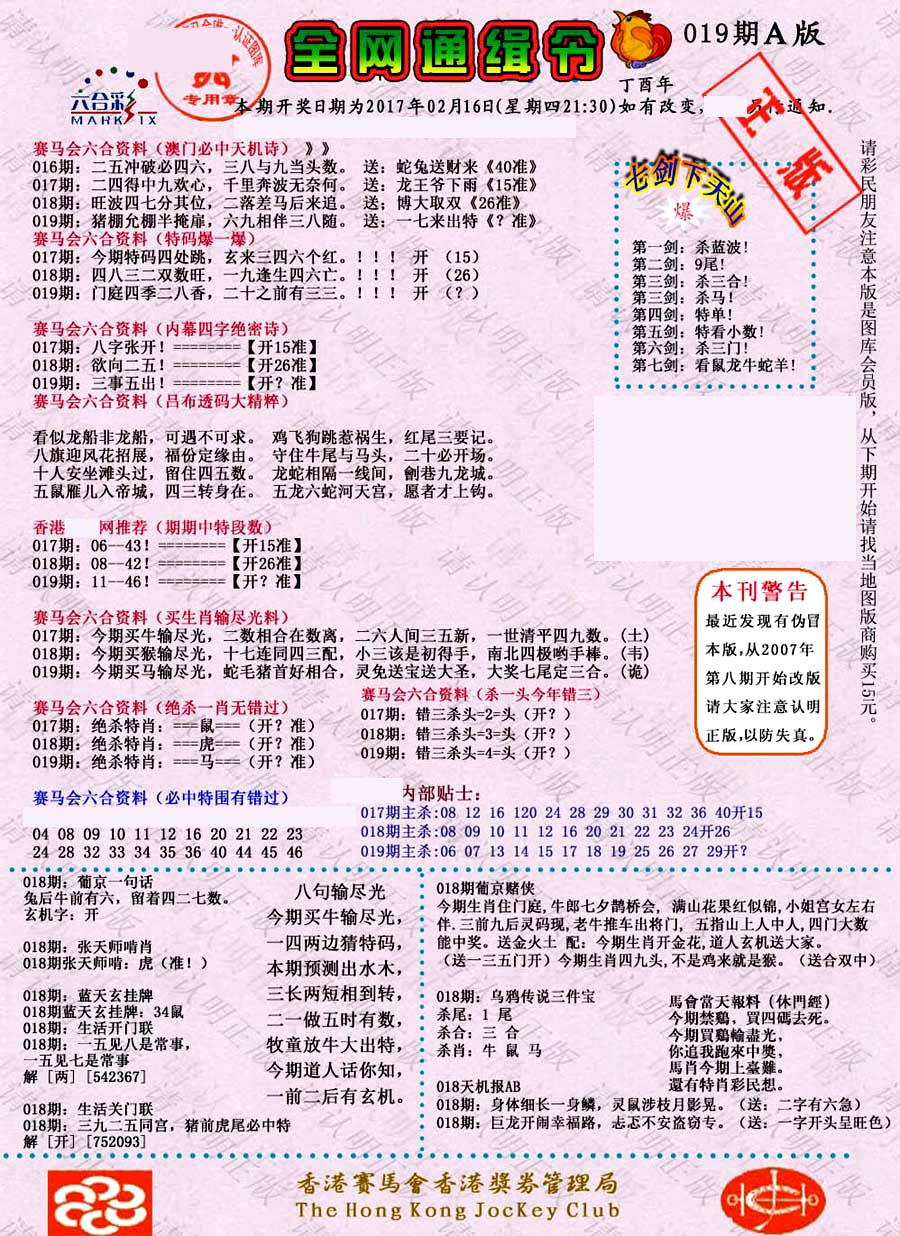 全网通缉令
019期A版
丁酉年
六合彩
MARK SIX
专用章
正版
本期开奖日期为2017年02月16日(星期四21:30)如有改变,
赛马会六合资料（澳门必中天机诗）》》
016期：二五冲破必四六，三八与九当头数。 送：蛇兔送财来《40准》
017期：二四得中九欢心，千里奔波无奈何。 送：龙王爷下雨《15准》
018期：旺波四七分其位，二落差马后来追。 送；博大取双《26准》
019期：猪棚允棚半掩扉，六九相伴三八随。 送：一七来出特《？准》
赛马会六合资料（特码爆一爆）
017期：今期特码四处跳，玄来三四六个红。！！！ 开 （15）
018期：四八三二双数旺，一九逢生四六亡。！！！ 开 （26）
019期：门庭四季二八香，二十之前有三三。！！！ 开 （？）
七剑下天山
爆
第一剑：杀蓝波！
第二剑：9尾！
第三剑：杀三合！
第三剑：杀马！
第四剑：特单！
第五剑：特看小数！
第六剑：杀三门！
第七剑：看鼠龙牛蛇羊！
请彩民朋友注意本版是图库会员版，从下期开始请找当地图版商购买15元。
赛马会六合资料（内幕四字绝密诗）
017期：八字张开！========【开15准】
018期：欲向二五！========【开26准】
019期：三事五出！========【开？准】
赛马会六合资料（吕布透码大精粹）
看似龙船非龙船，可遇不可求。 鸡飞狗跳惹祸生，红尾三要记。
八旗迎风花招展，福份定缘由。 守住牛尾与马头，二十必开场。
十人安坐滩头过，留住四五数。 龙蛇相隔一线间，劍巷九龙城。
五鼠雁儿入帝城，四三转身在。 五龙六蛇河天宫，愿者才上钩。
香港 网推荐（期期中特段数）
017期：06--43！========【开15准】
018期：08--42！========【开26准】
019期：11--46！========【开？准】
本刊警告
最近发现有伪冒
本版,从2007年
第八期开始改版
请大家注意认明
正版,以防失真。
赛马会六合资料（买生肖输尽光料）
017期：今期买牛输尽光，二数相合在数离，二六人间三五新，一世清平四九数。(土)
018期：今期买猴输尽光，十七连同四三配，小三该是初得手，南北四极哟手棒。(韦)
019期：今期买马输尽光，蛇毛猪首好相合，灵兔送宝送大圣，大奖七尾定三合。(诡)
赛马会六合资料（绝杀一肖无错过）
017期：绝杀特肖：===鼠===（开？准）
018期：绝杀特肖：===虎===（开？准）
019期：绝杀特肖：===马===（开？准）
赛马会六合资料（杀一头今年错三）
017期：错三杀头=2=头（开？）
018期：错三杀头=3=头（开？）
019期：错三杀头=4=头（开？）
赛马会六合资料（必中特围有错过）
04 08 09 10 11 12 16 20 21 22 23
24 28 32 33 34 35 36 40 44 45 46
内部贴士：
017期主杀:08 12 16 120 24 28 29 30 31 32 36 40开15
018期主杀:08 09 10 11 12 16 20 21 22 23 24开26
019期主杀:06 07 13 14 15 17 18 19 25 26 27 29开？
018期：葡京一句话
兔后牛前有六，留着四二七数。
玄机字：开
018期：张天师啃肖
018期张天师啃：虎（准！）
018期：蓝天玄挂牌
018期蓝天玄挂牌：34鼠
018期：生活开门联
018期：一五见八是常事，
一五见七是常事
解 [两] [542367]
018期：生活关门联
018期：三九二五同宫，猪前虎尾必中特
解 [开] [752093]
八句输尽光
今期买牛输尽光，
一四两边猜特码，
本期预测出水木，
三长两短相到转，
二一做五时有数，
牧童放牛大出特，
今期道人话你知，
一前二后有玄机。
018期葡京赌侠
今期生肖住门庭,牛郎七夕鹊桥会, 满山花果红似锦,小姐宫女左右
伴.三前九后灵码现,老牛推车出将门, 五指山上人中人,四门大数
能中奖。送金火土 配：今期生肖开金花,道人玄机送大家。
（送一三五门开）今期生肖四九头,不是鸡来就是猴。（送合双中）
018期：乌鸦传说三件宝
杀尾：1 尾
杀合：三 合
杀肖：牛 鼠 马
馬會當天報料（休門經）
今期禁鷄、買四碼去死。
今期買鷄輸盡光，
你追我跑來中獎，
馬肖今期上臺難。
還有特肖彩民想。
018天机报AB
018期：身体细长一身鳞，灵鼠涉枝月影晃。（送：二字有六急）
018期：巨龙开闹幸福路，忐忑不安盗窃专。（送：一字开头呈旺色）
香港賽馬會香港獎券管理局
The Hong Kong JocKey Club